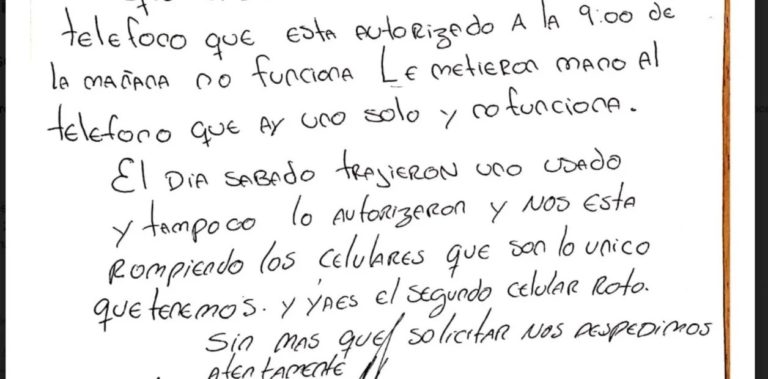 telefoco que esta autorizado A la 9:00 de
la mañana no funciona Le metieron mano Al
telefono que Ay uno solo y no funciona.
El DIA SABADO trajieron uno usado
y tampoco lo autorizeron y nos esta
Rompiendo los celulares que son lo unico
que tenemos. y yaes el segundo celular Roto.
Sin mas que solicitar nos despedimos
atentamente